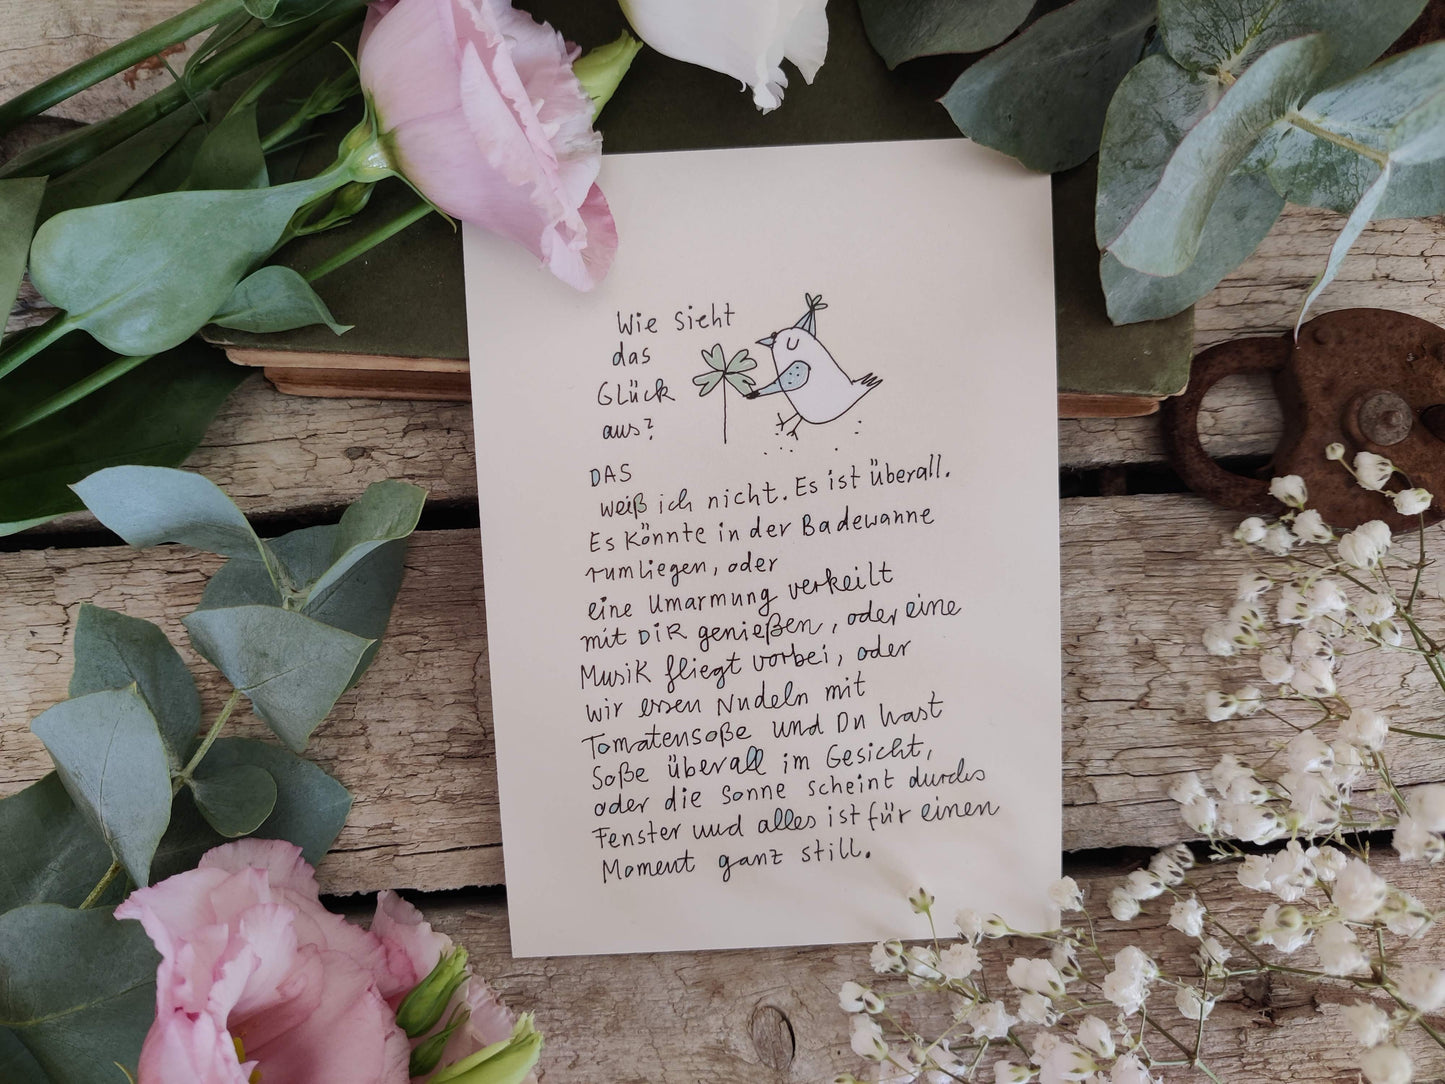 Wie sieht
das
Glück
aus?
DAS
weiß ich nicht. Es ist überall.
Es könnte in der Badewanne
rumliegen, oder
eine Umarmung verkeilt
mit DIR genießen, oder eine
Musik fliegt vorbei, oder
wir essen Nudeln mit
Tomatensoße und Du hast
Soße überall im Gesicht,
oder die Sonne scheint durchs
Fenster und alles ist für einen
Moment ganz still.